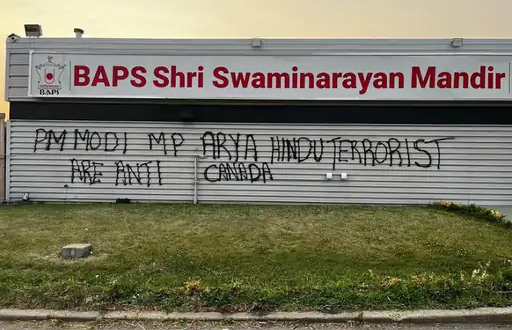 BAPS
BAPS Shri Swaminarayan Mandir
PM MODI MP ARYA HINDU TERRORIST
ARE ANTI CANADA